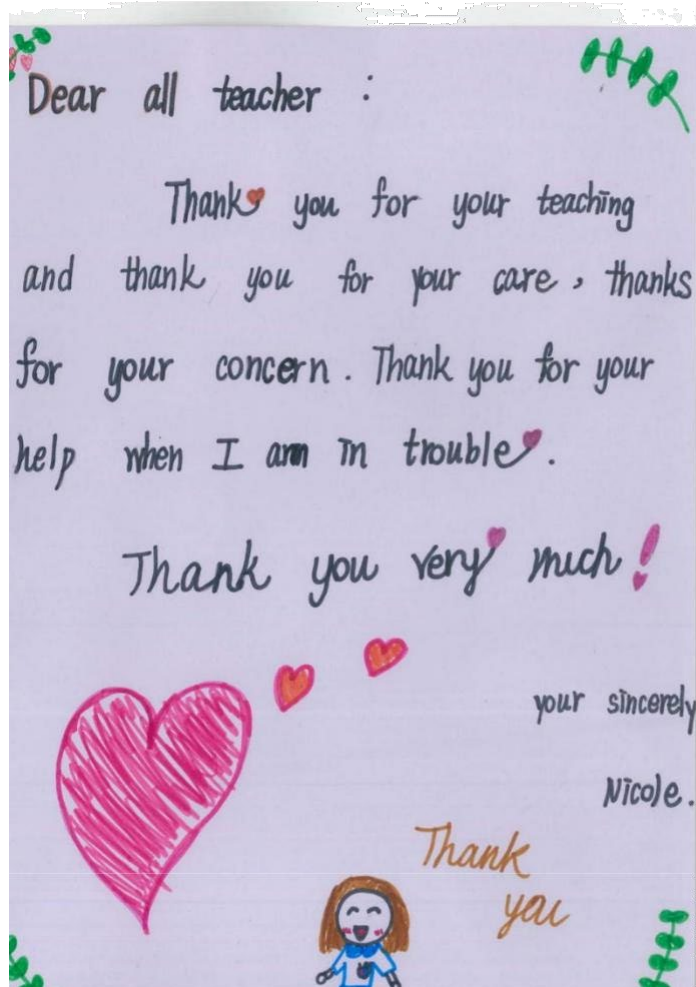 Dear all teacher :
Thank you for your teaching
and thank you for your care, thanks
for your concern. Thank you for your
help when I am in trouble.
Thank you very much!
your sincerely
Nicole.
Thank
you